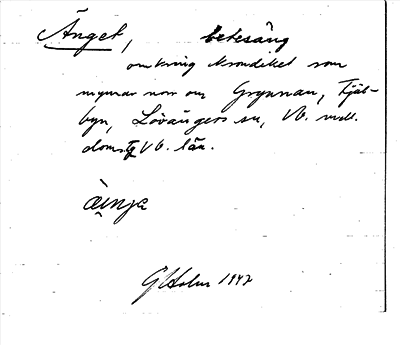 Änget, betesäng
omkring Krondiket som
mynnar norr om Grynnan, Fjäl-
byn, Lövångers sn, Vb. mell.
doms. Vb. län.
G Holm 1947